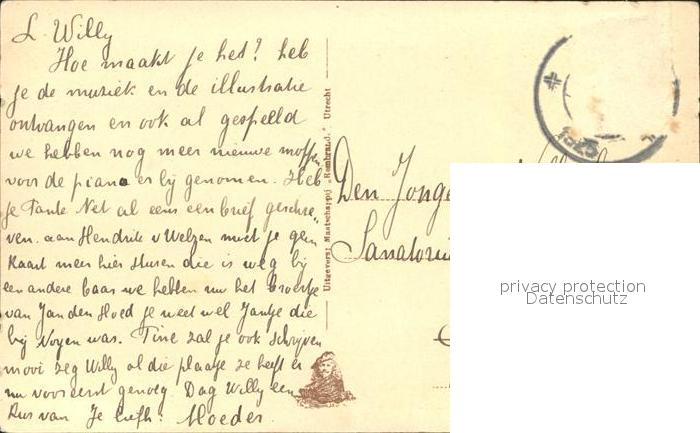 L. Willy
Hoe maakt je het? heb
je de muziek en de illustratie
ontvangen en ook al gespeeld
we hebben nog meer nieuwe moffen
voor de piano er bij genomen. Heb
je Tante Net al eens een brief geschre,,
ven. aan Hendrik v Welzen moet je geen
kaart meer hier sturen die is weg bij
een andere baas we hebben nu het broertje
van Jan den Hoed je weet wel Jantje die
bij Noyen was. Tine zal je ook schrijven
mooi zeg Willy al die plaatje ze heeft er
nu vooreerst genoeg Dag Willy een
Kus van Je liefh. Moeder
Uitgevers Maatschappij „Rembrand." Utrecht
Den Jonge
Sanatoriu
privacy protection
Datenschutz